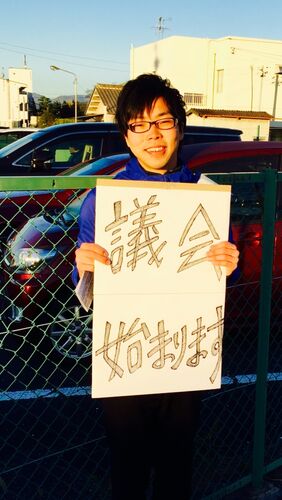 議会
始まります